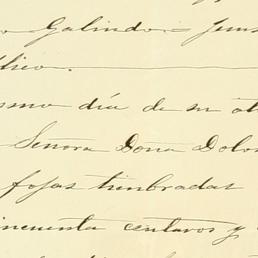 o Galindo
lico.
smo dia de su ot
Señora Dona Dolo
fojas timbradas
incuenta centavos y